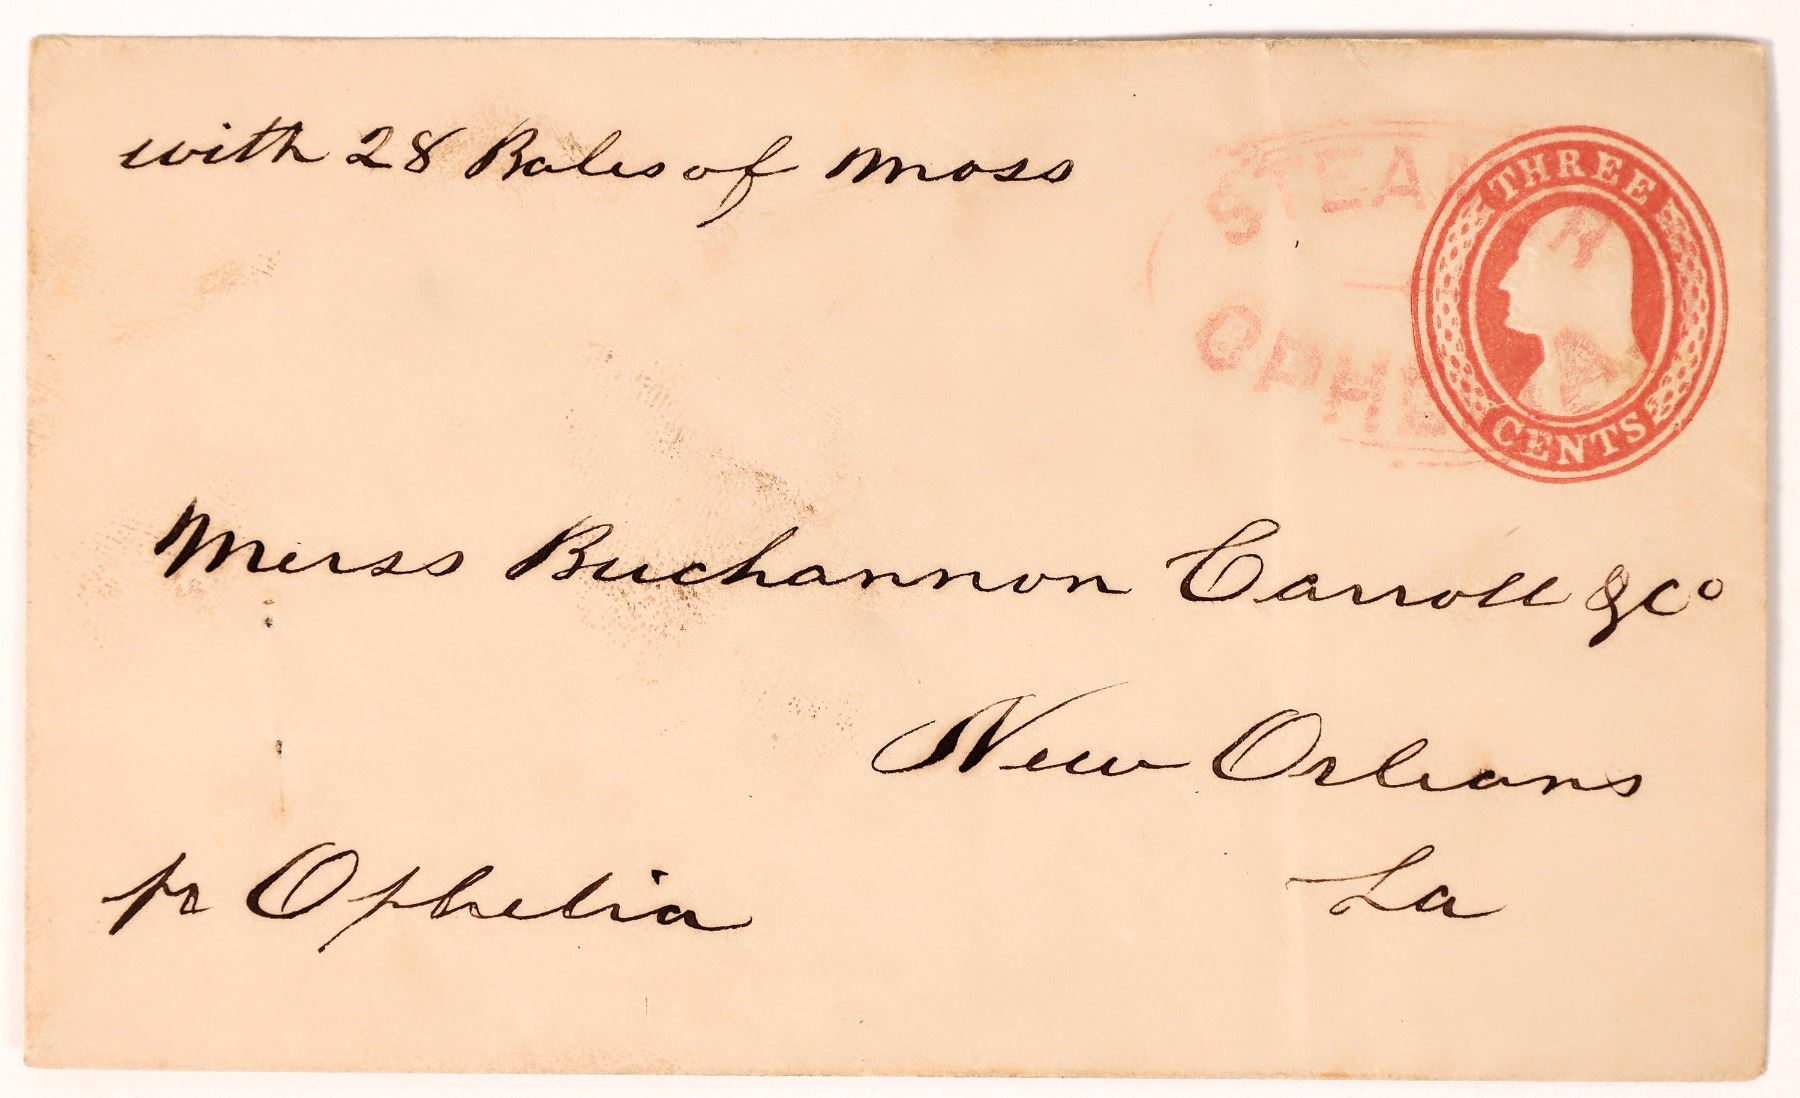 with 28 Bales of Moss
STEAM
THREE
OPHE
CENTS
Merss Buchannon Carroll & Co
New Orleans
La
pr Ophelia